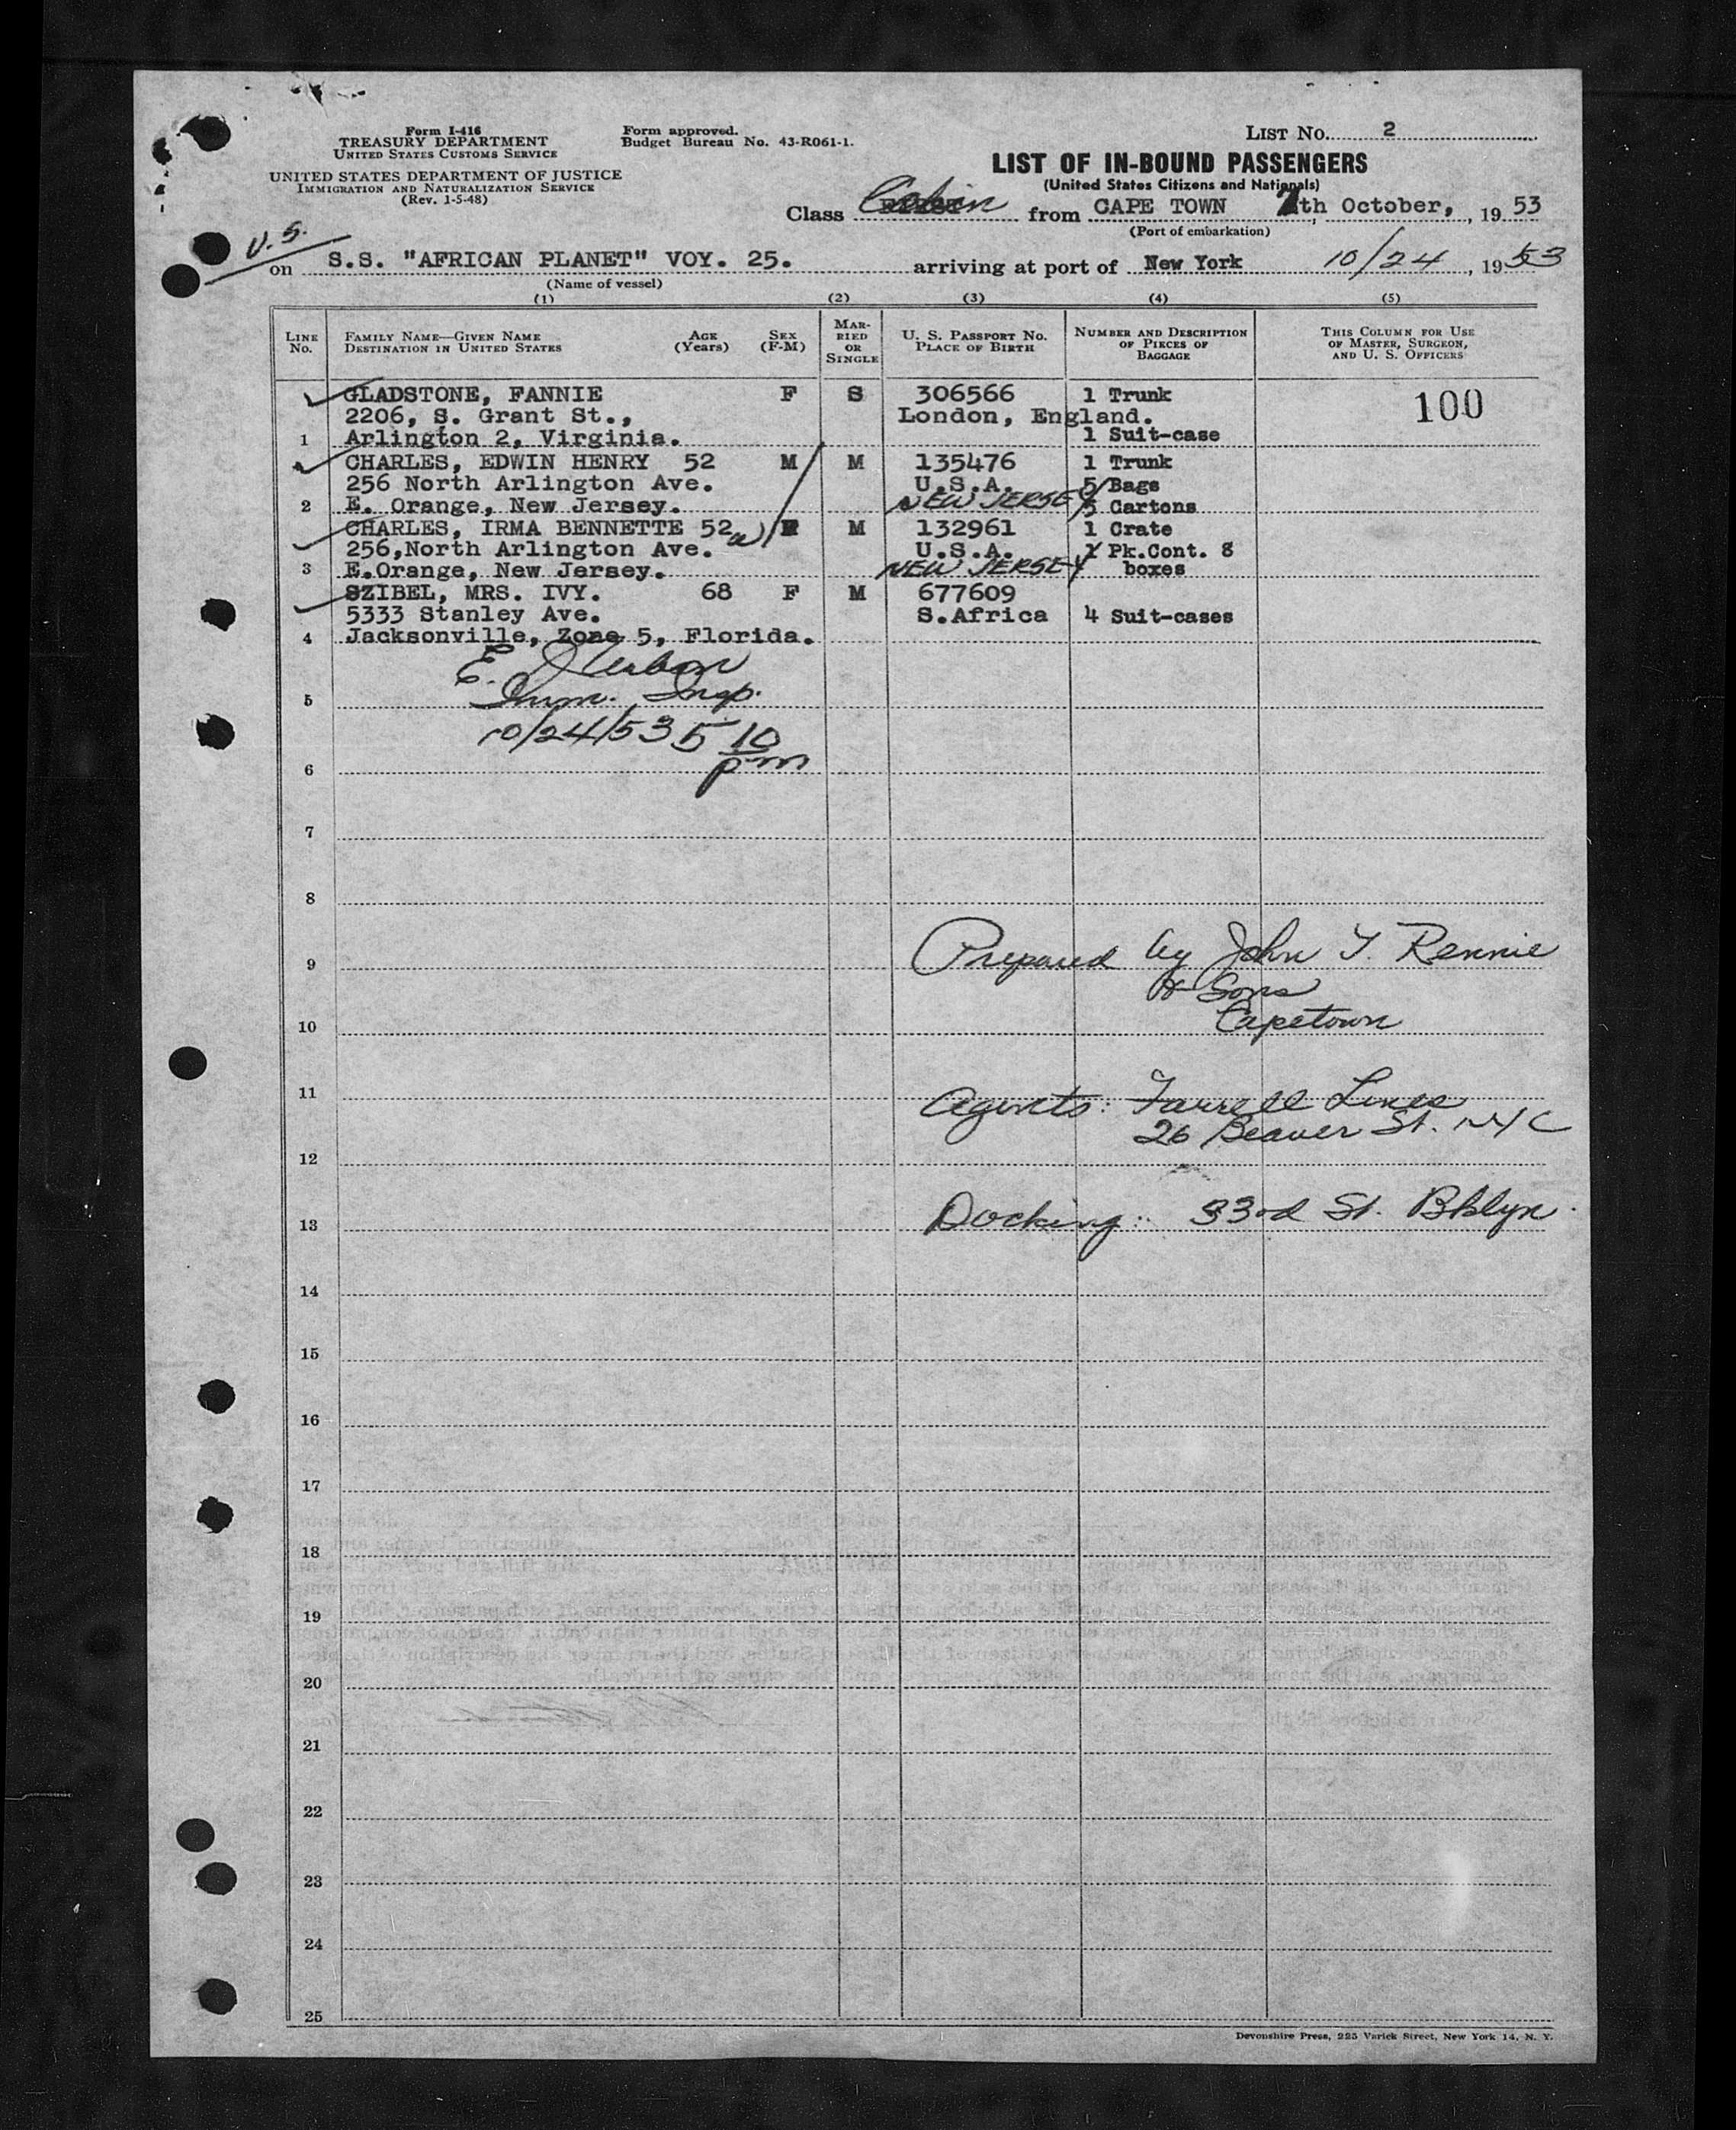 Form I-416
TREASURY DEPARTMENT
UNITED STATES CUSTOMS SERVICE
UNITED STATES DEPARTMENT OF JUSTICE
IMMIGRATION AND NATURALIZATION SERVICE
(Rev. 1-5-48)
Form approved.
Budget Bureau No. 43-R061-1.
LIST NO. 2
LIST OF IN-BOUND PASSENGERS
(United States Citizens and Nationals)
Class Cabin from CAPE TOWN 7th October, , 19 53
(Port of embarkation)
U.S.
on S.S. "AFRICAN PLANET" VOY. 25. arriving at port of New York 10/24 , 19 53
(Name of vessel)
(1) (2) (3) (4) (5)
LINE No. FAMILY NAME—GIVEN NAME DESTINATION IN UNITED STATES AGE (Years) SEX (F-M) MARRIED OR SINGLE U. S. PASSPORT NO. PLACE OF BIRTH NUMBER AND DESCRIPTION OF PIECES OF BAGGAGE THIS COLUMN FOR USE OF MASTER, SURGEON, AND U. S. OFFICERS
GLADSTONE, FANNIE F S 306566 1 Trunk 100
2206, S. Grant St., London, England.
1 Arlington 2, Virginia. 1 Suit-case
CHARLES, EDWIN HENRY 52 M M 135476 1 Trunk
256 North Arlington Ave. U.S.A. 5 Bags
2 E. Orange, New Jersey. NEW JERSEY 5 Cartons
CHARLES, IRMA BENNETTE 52 M 132961 1 Crate
256,North Arlington Ave. U.S.A. Pk.Cont. 8
3 E.Orange, New Jersey. NEW JERSEY boxes
SZIBEL, MRS. IVY. 68 F M 677609
5333 Stanley Ave. S.Africa 4 Suit-cases
4 Jacksonville, Zone 5, Florida.
E.
5 Imm. Insp.
10/24/53 5 10 pm
6
7
8
9 Prepared by John T. Rennie
& Sons
10 Capetown
11 Agents: Farrell Lines
26 Beaver St. NYC
12
13 Docking: 33rd St. Bklyn.
14
15
16
17
18
19
20
21
22
23
24
25
Devonshire Press, 225 Varick Street, New York 14, N. Y.